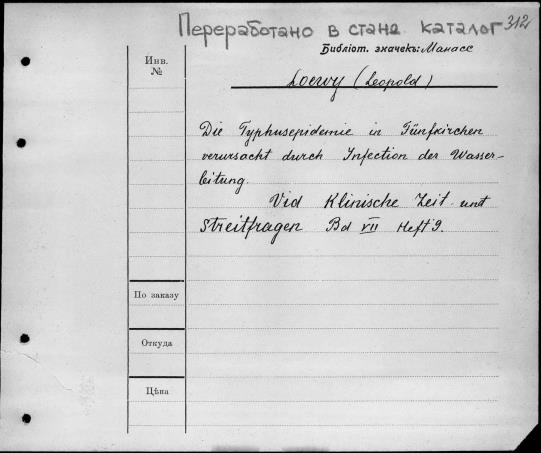 Переработано в стана каталог 312
Библіот. значекъ: Манасс
Инв.
№
Loewy (Leopold)
Die Typhusepidemie in Fünfkirchen
verursacht durch Infection der Wasser-
leitung.
Vid Klinische Zeit- und
Streitfragen Bd VII Heft 9.
По заказу
Откуда
Цѣна